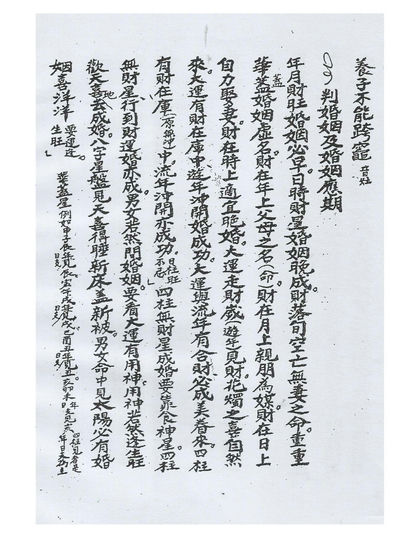 養子不能跨竈
判婚姻及婚姻應期
年月財旺婚姻必早。日時財星婚姻晚成財落旬空亡無妻之命重重
華蓋婚姻虛名財在年上父母之名(命)財在月上親朋為媒財在日上
自力娶妻。財在時上適宜晚婚。大運走財歲(遊年)見財花燭之喜自然
來。大運有財在庫中遊年沖開婚成功。大運與流年有合財必成美眷來四柱
有財在庫 中,流年沖開亦成功。 四柱無財星成婚要靠食神星四柱
無財星行到財運婚亦成。男女若然問婚姻。要看大運有用神,用神必須逢生旺
歡天喜地去成婚。八字星盤見天喜得睡新床蓋新被。男女命中見太陽必有婚
姻喜洋洋 要運逢生旺 華蓋星例如甲子年見辰